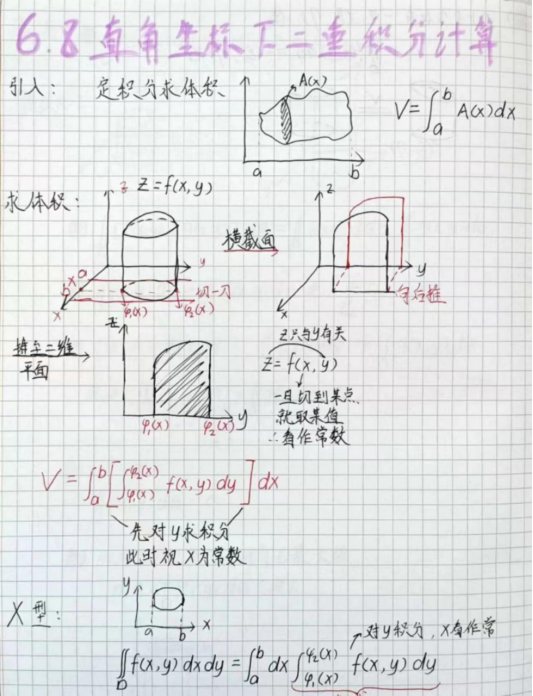 6.8 直角坐标下二重积分计算
引入: 定积分求体积
A(x)
a b
V=∫_a^b A(x)dx
求体积:
z z=f(x,y)
y
a x b
x
切一刀
φ₁(x) φ₂(x)
横截面
z
y
x
向后推
z
y
φ₁(x) φ₂(x)
平面
z只与y有关
z=f(x,y)
一旦切到某点
就取某值
∴看作常数
V=∫_a^b[∫_{φ₁(x)}^{φ₂(x)} f(x,y)dy]dx
先对y求积分
此时视x为常数
X型:
y
a b x
对y积分, x看作常
∬_D f(x,y)dxdy=∫_a^b dx∫_{φ₁(x)}^{φ₂(x)} f(x,y)dy